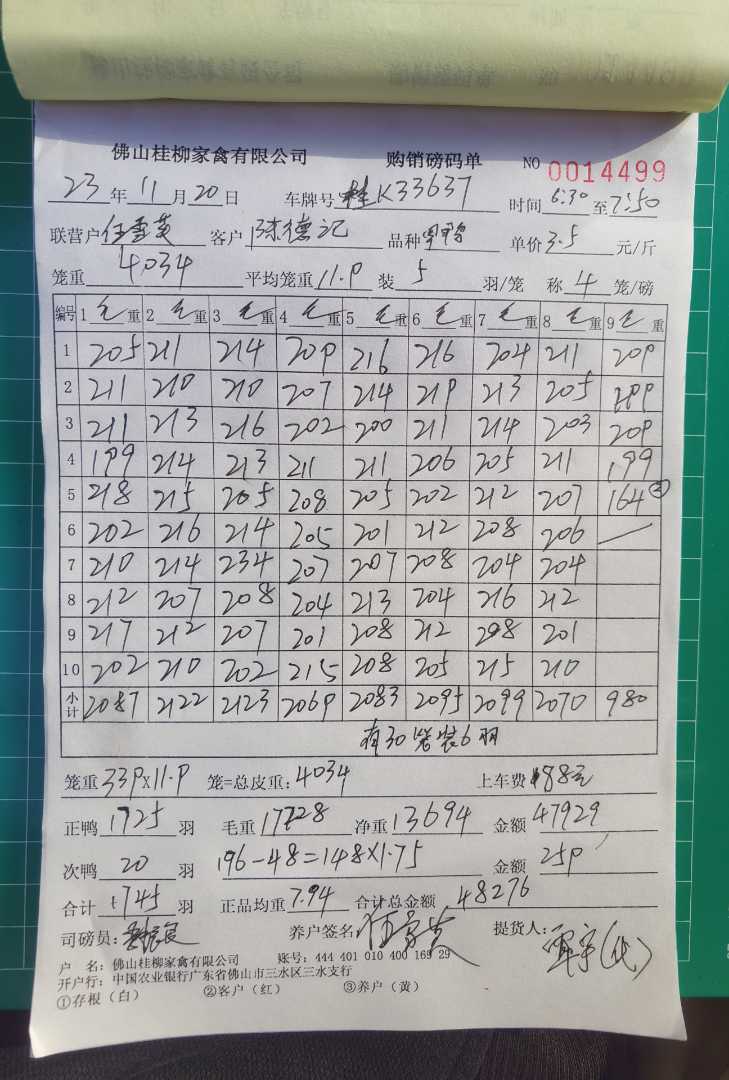 佛山桂柳家禽有限公司 购销磅码单 NO 0014499
23年11月20日 车牌号 桂K33637 时间6:30至7:50
联营户 任雪英 客户 陈德记 品种 单价3.5元/斤
笼重 4034 平均笼重 11.9 装 5 羽/笼 称 4 笼/磅
编号 1 毛重 2 毛重 3 毛重 4 毛重 5 毛重 6 毛重 7 毛重 8 毛重 9 毛重
1 205 211 214 209 216 216 204 211 209
2 211 210 210 207 214 219 213 205 199
3 211 213 216 202 200 211 214 203 209
4 199 214 213 211 211 206 205 211 199
5 218 215 205 208 205 202 212 207 164③
6 202 216 214 205 201 212 208 206 —
7 210 214 234 207 207 208 204 204
8 212 207 208 204 213 204 216 212
9 217 212 207 201 208 212 208 201
10 202 210 202 215 208 205 215 210
小计 2087 2122 2123 2069 2083 2095 2099 2070 980
有30笼装6羽
笼重 339×11.9 笼=总皮重: 4034 上车费 88元
正鸭 1725 羽 毛重 17728 净重 13694 金额 47929
次鸭 20 羽 196-48=148×1.75 金额 259
合计 1745 羽 正品均重 7.94 合计总金额 48276
司磅员: 养户签名 任雪英 提货人: (代)
户 名: 佛山桂柳家禽有限公司 账号: 444 401 010 400 169 29
开户行: 中国农业银行广东省佛山市三水区三水支行
①存根(白) ②客户(红) ③养户(黄)